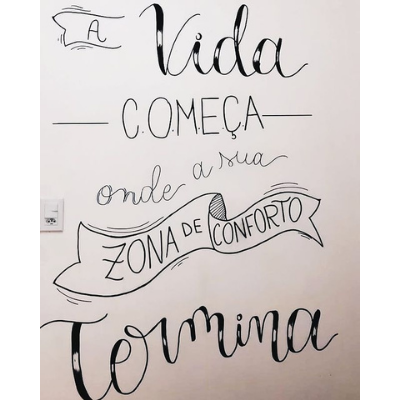 A Vida
C.O.M.E.Ç.A
onde a sua
ZONA DE CONFORTO
Termina